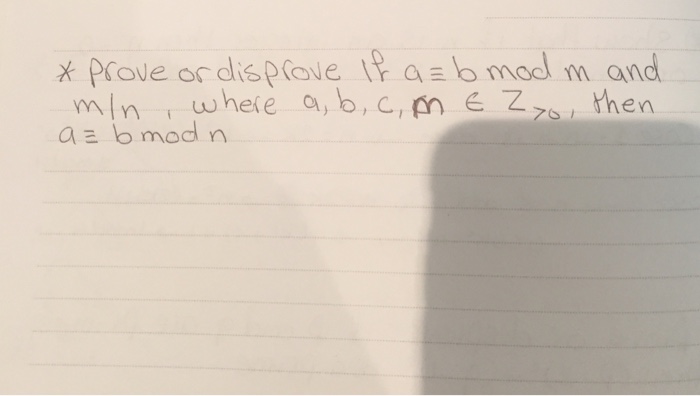 * prove or disprove If a ≡ b mod m and
m|n , where a, b, c, m ∈ Z >0, then
a ≡ b mod n